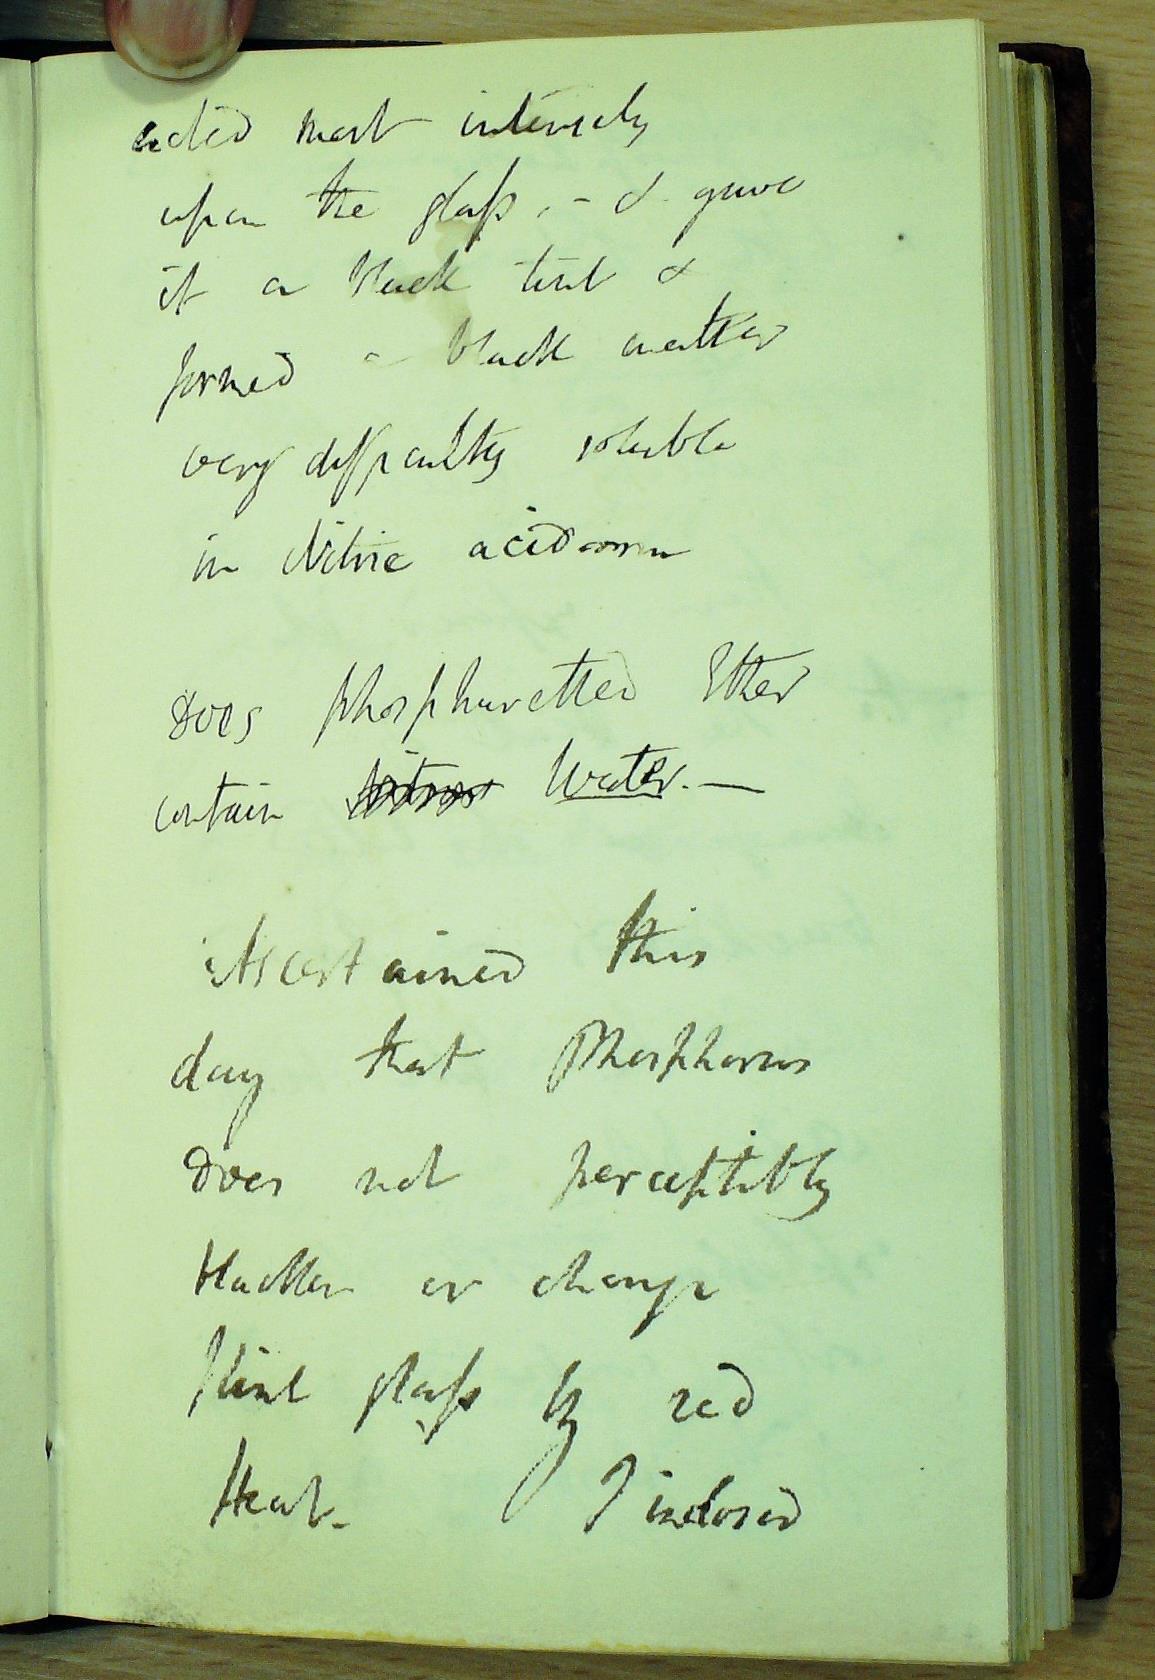 acted most intensely
upon the glaſs, - & gave
it a black tint &
formed a black matter
very difficultly soluble
in Nitric acid
Does phosphuretted Ether
contain Water. —
Ascertained this
day that Phosphorus
does not perceptibly
blacken or change
flint glaſs by red
Heat. - I inclosed